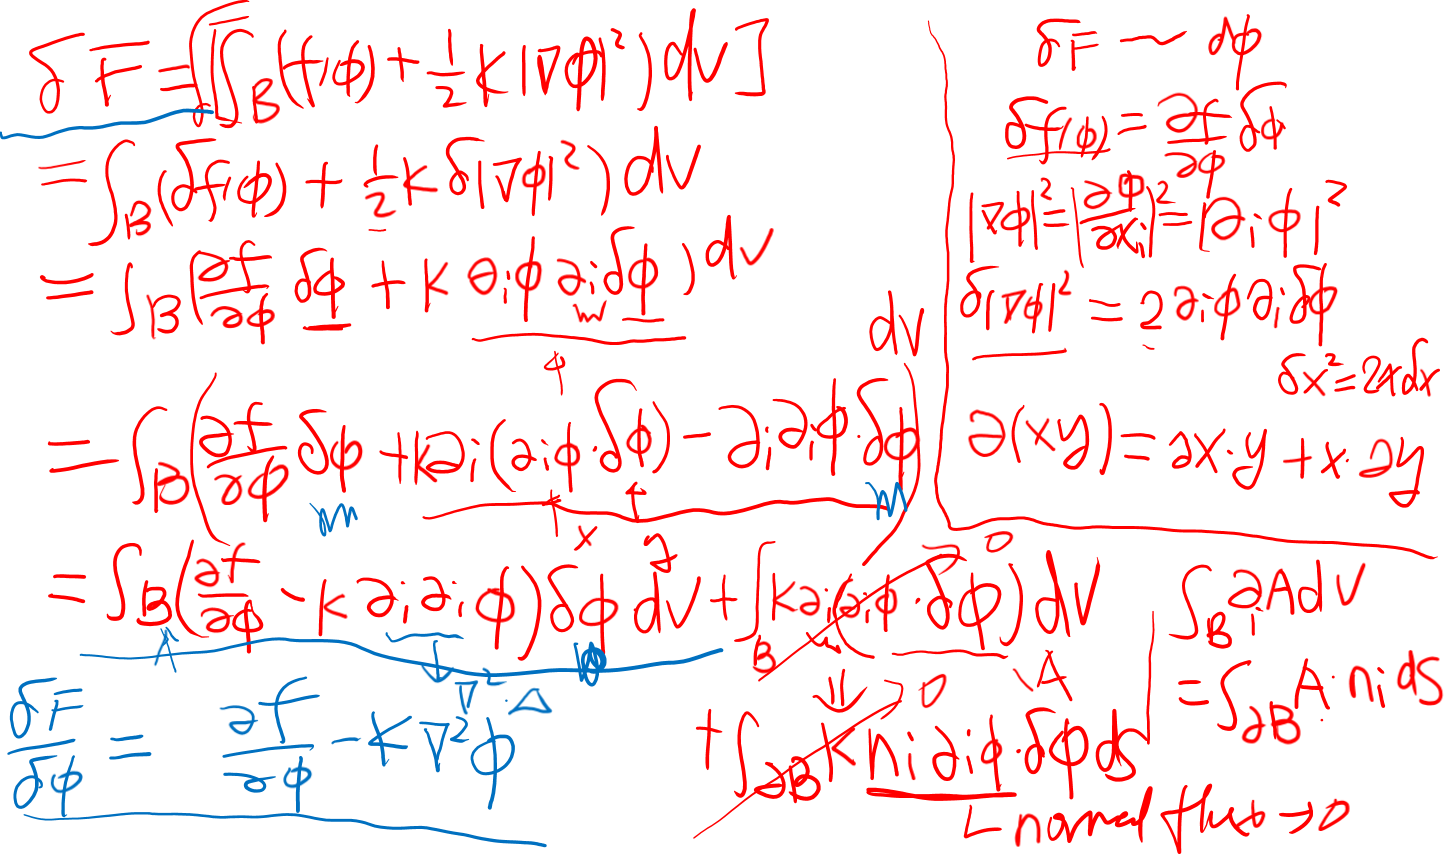 δF = δ[∫_B (f(φ) + 1/2 K|∇φ|²) dv]
= ∫_B (δf(φ) + 1/2 K δ|∇φ|²) dv
= ∫_B (∂f/∂φ δφ + K ∂iφ ∂iδφ) dv
= ∫_B (∂f/∂φ δφ + K∂i(∂iφ·δφ) − ∂i∂iφ·δφ) dv
x y
= ∫_B (∂f/∂φ − K ∂i∂iφ) δφ dv + ∫_B K∂i(∂iφ·δφ) dv → 0
∇² · Δ
A
+ ∫_∂B K ni ∂iφ·δφ ds → 0
normal flux → 0
δF/δφ = ∂f/∂φ − K∇²φ
δF ~ δφ
δf(φ) = ∂f/∂φ δφ
|∇φ|² = |∂φ/∂xi|² = |∂iφ|²
δ|∇φ|² = 2∂iφ∂iδφ
δx² = 2xδx
∂(xy) = ∂x·y + x·∂y
∫_B ∂iA dv
= ∫_∂B A·ni ds